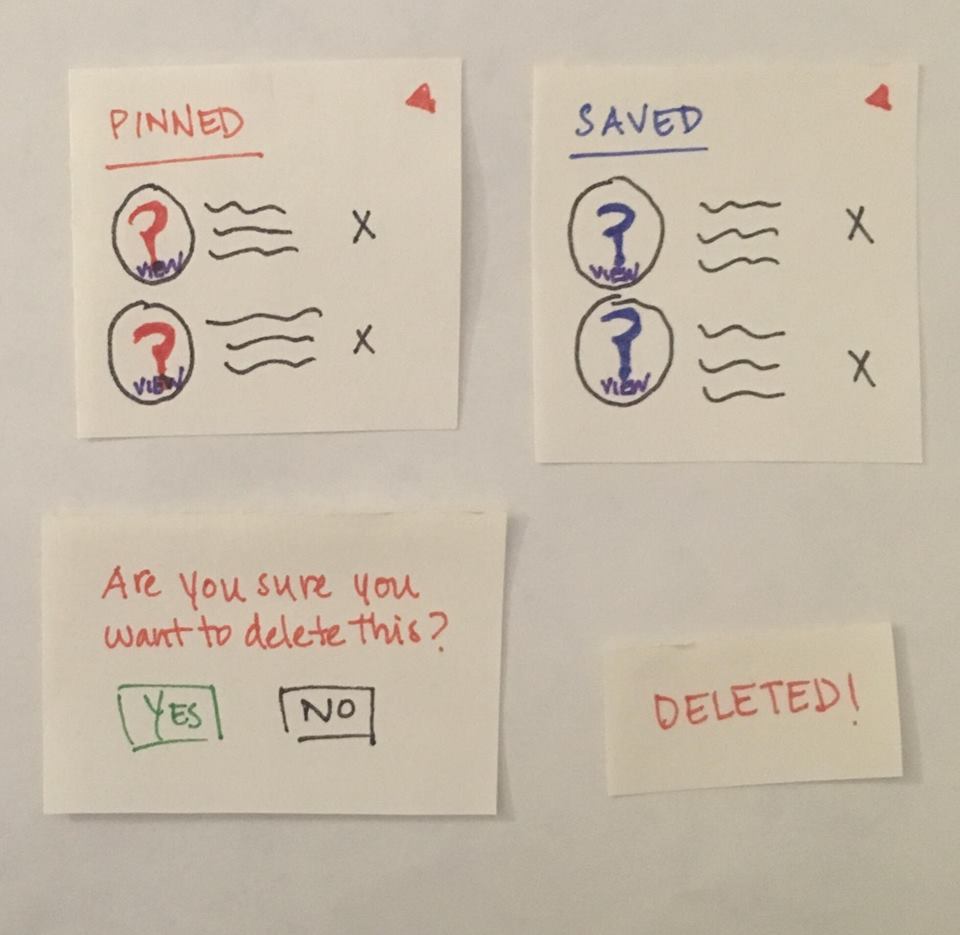 PINNED
?
VIEW
X
?
VIEW
X
SAVED
?
VIEW
X
?
VIEW
X
Are you sure you
want to delete this?
YES
NO
DELETED!